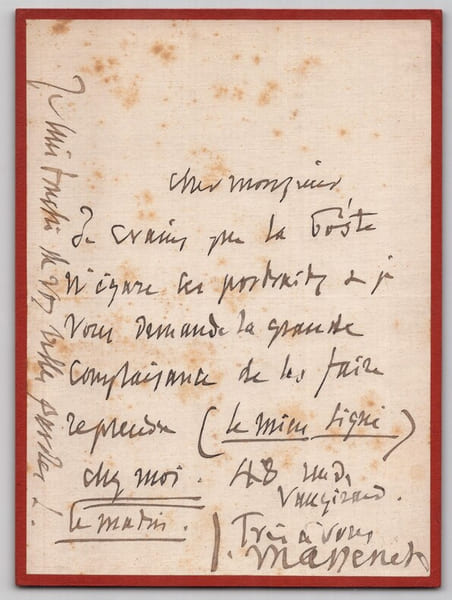 cher monsieur
Je crains que la Poste
n'égare ces portraits & je
vous demande la grande
complaisance de les faire
reprendre (le mien signé)
chez moi. 48 rue de
Vaugirard.
le matin.
Très à vous
Massenet
Je suis touché de vos belles paroles !